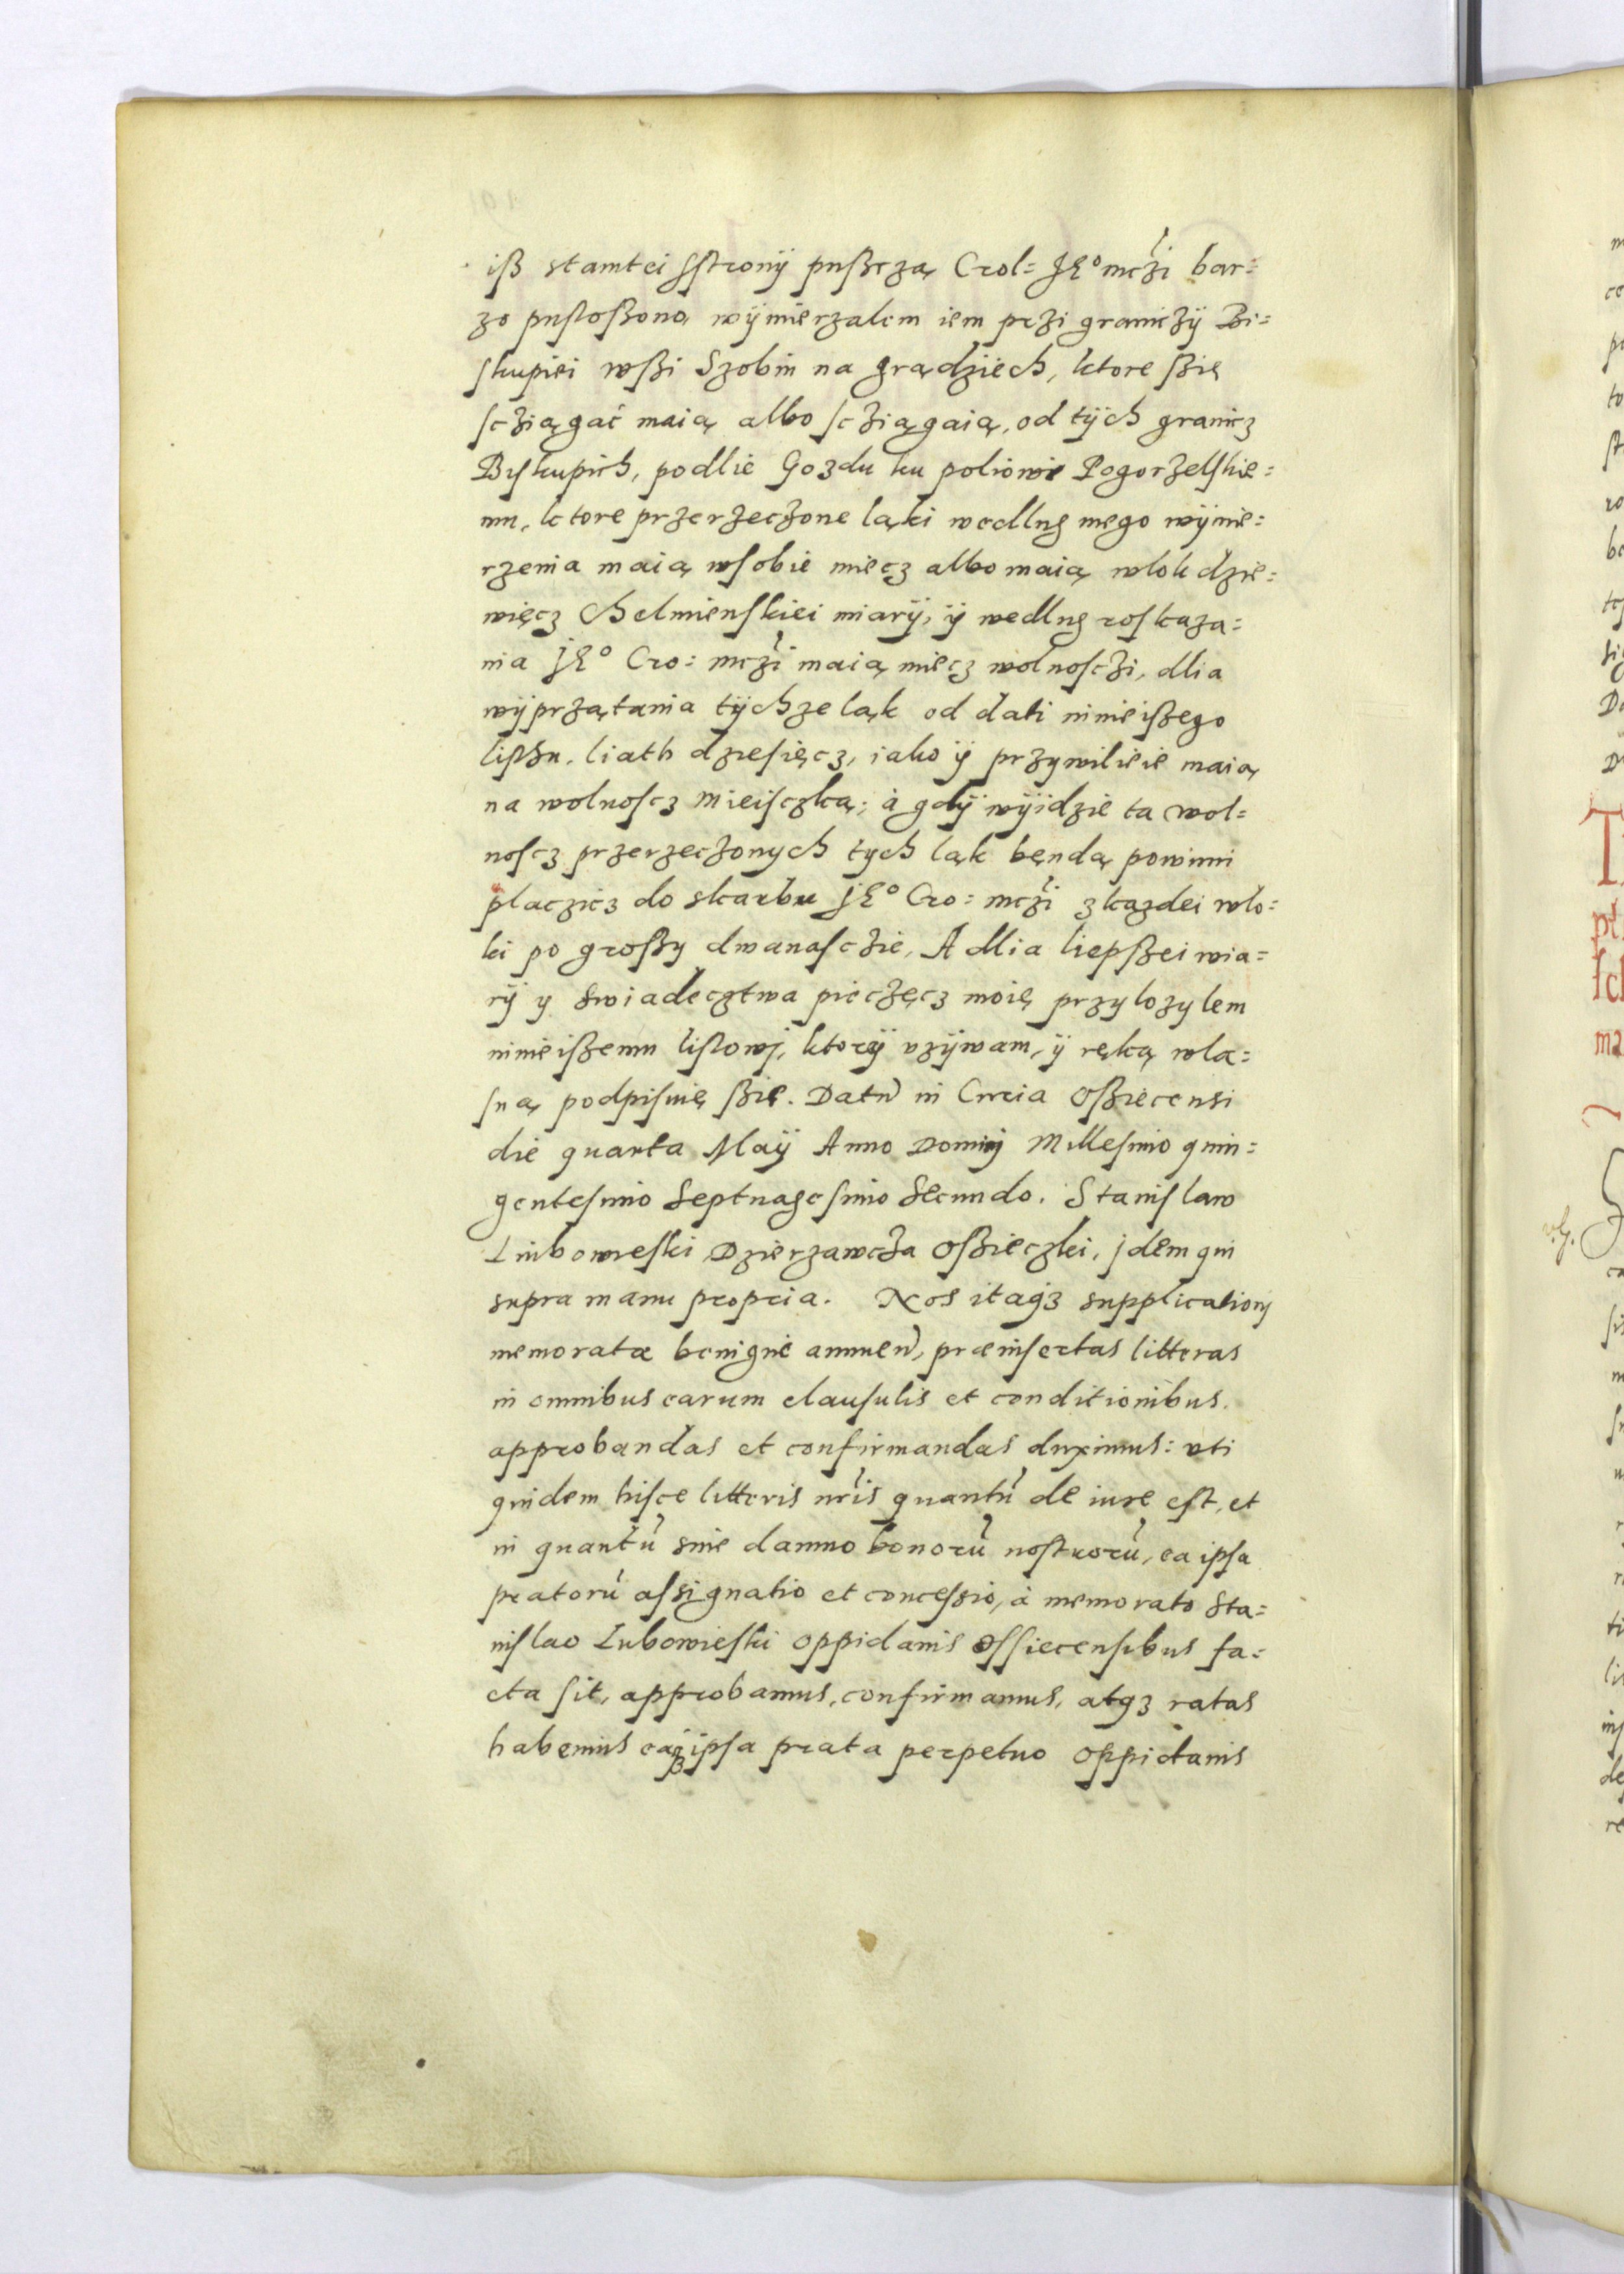 iß stamtei ſſtronÿ pußczą Crol= JE° mcżi bar=
zo puſtoßono wÿmierzalem iem przi graniczÿ Bi=
skupiei wßi Szobin na grądziech, ktore ßię
ſcżiągać maią albo ſcżiągaią, od tÿch granicz
Biskupich, podlie Gozdu ku poliowi Pogorzelskie=
mu, ktore przerzeczone ląki wedlug mego wÿmie=
rzenia maią wſobie miecz albo maią wlok dzie=
więcz Chelmienskiei miarÿ, ÿ wedlug roskaza=
nia JE° Cro: mcżi maią miecz wolnoſcżi, dlia
wÿprzątania tÿchze ląk od dati ninieißego
liſthu. liath dzieſięcz, iako ÿ przywilieie maią
na wolnoſcz mieiſczką; à gdÿ wÿidzie ta wol=
noſcz przerzeczonych tych ląk będą powinni
placzicz do skarbu JE° Cro: mcżi z kazdei wlo=
ki po großy dwanaſczie, A dlia liepßei wia=
rÿ y swiadecztwa pieczęcz moię przylozylem
ninieißemu liſtowj, ktorÿ vzÿwam, ÿ ręką wla=
ſną podpiſuię ßię. Datũ in Curia Oßiecensi
die quarta Maÿ Anno Dominj Milleſimo quin=
genteſimo Septuageſimo Secundo. Stanislaw
Liubowieski Dzierzawcża Oßieczki, jdem qui
supra manu propria. Nos itaqȝ supplicationj
memoratæ benigne annueñ, præinſertas litteras
in omnibus earum clauſulis et conditionibus.
approbandas et confirmandas duximus: vti
quidem hiſce litteris nr̃is quantũ de iure eſt, et
in quantũ sine damno bonorũ nostrorũ, ea ipſa
pratorũ aſsignatio et conceſsio, à memorato Sta=
nislao Lubowieski oppidanis Oſſiecenſibus fa=
cta ſit, approbamus, confirmamus, atqȝ ratas
habemus eaqȝ ipſa prata perpetuo oppidanis